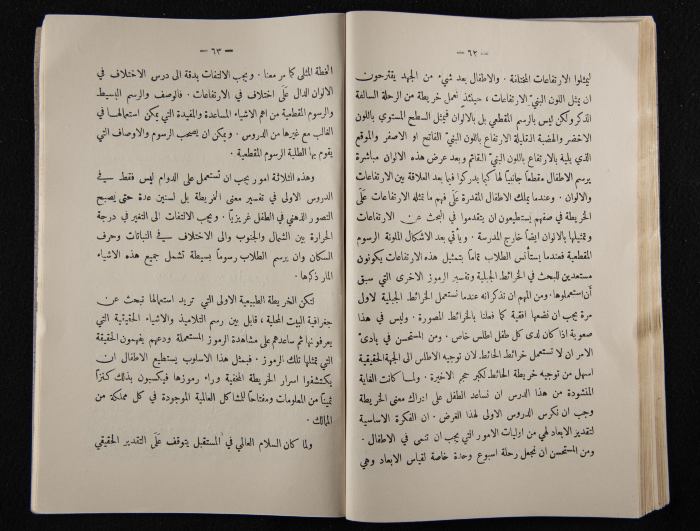 — ٦٢ —
ليمثلوا الارتفاعات المختلفة . والاطفال بعد شيء من الجهد يقترحون
ان يمثل اللون البني الارتفاعات ، حينئذ نعمل خريطة من الرحلة السالفة
الذكر ولكن ليس بالرسم المقطعي بل بالالوان فيمثل السطح المستوي باللون
الاخضر والهضبة القليلة الارتفاع باللون البني الفاتح او الاصفر والموقع
الذي يليه بالارتفاع باللون البني القاتم وبعد عرض هذه الالوان مباشرة
يرسم الاطفال مقطعاً جانبياً لها كيما يدركوا فيها بعد العلاقة بين الارتفاعات
والالوان . وعندما يملك الاطفال المقدرة على فهم ما تمثله الارتفاعات على
الخريطة في صفهم يستطيعون ان يتقدموا في البحث عن الارتفاعات
وتمثيلها بالالوان ايضاً خارج المدرسة . ويأتي بعد الاشكال الملونة الرسوم
المقطعية فعندما يستأنس الطلاب تماماً بتمثيل هذه الارتفاعات يكونون
مستعدين للبحث في الخرائط الجبلية وتفسير الرموز الاخرى التي سبق
أن استعملوها . ومن المهم ان نذكر انه عندما نستعمل الخرائط الجبلية لاول
مرة يجب ان نضعها افقية كما فعلنا بالخرائط المصورة . وليس في هذا
صعوبة اذا كان لدى كل طفل اطلس خاص . ومن المستحسن في بادئ
الامر ان لا تستعمل خرائط الحائط لان توجيه الاطلس الى الجهة الحقيقية
اسهل من توجيه خريطة الحائط لكبر حجم الاخيرة . ولما كانت الغاية
المنشودة من هذا الدرس ان نساعد الطفل على ادراك معنى الخريطة
وجب ان نكرس الدروس الاولى لهذا الغرض . ان الفكرة الاساسية
لتقدير الابعاد لهي من اوليات الامور التي يجب ان تنمى في الاطفال .
ومن المستحسن ان نجعل رحلة اسبوع وحدة خاصة لقياس الابعاد وهي
— ٦٣ —
الخطة المثلى كما مر معنا . ويجب الالتفات بدقة الى درس الاختلاف في
الالوان الدال على اختلاف في الارتفاعات . فالوصف والرسم البسيط
والرسوم المقطعية من اهم الاشياء المساعدة والمفيدة التي يمكن استعمالها في
الغالب مع غيرها من الدروس . ويمكن ان يصحب الرسوم والاوصاف التي
يقوم بها الطلبة الرسوم المقطعية .
وهذه الثلاثة امور يجب ان تستعمل على الدوام ليس فقط في
الدروس الاولى في تفسير معنى الخريطة بل لسنين عدة حتى يصبح
التصور الذهني في الطفل غريزياً . ويجب الالتفات الى التغير في درجة
الحرارة بين الشمال والجنوب والى الاختلاف في النباتات وحرف
السكان وان يرسم الطلاب رسوماً بسيطة تشمل جميع هذه الاشياء
المار ذكرها .
لتكن الخريطة الطبيعية الاولى التي تريد استعمالها تبحث عن
جغرافية البيت المحلية ، قابل بين رسم التلاميذ والاشياء الحقيقية التي
يعرفونها ثم ساعدهم على مشاهدة الرموز المستعملة ودعهم يفهمون الحقيقة
التي تمثلها تلك الرموز . فبمثل هذا الاسلوب يستطيع الاطفال ان
يكتشفوا اسرار الخريطة المخفية وراء رموزها فيكسبون بذلك كنزاً
ثميناً من المعلومات ومفتاحاً للمشاكل العالمية الموجودة في كل مملكة من
الممالك .
ولما كان السلام العالمي في المستقبل يتوقف على التقدير الحقيقي